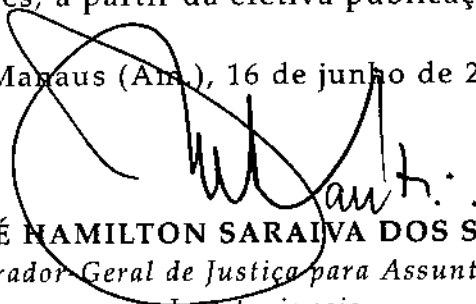 es, a partir da efetiva publicaç
Manaus (Am.), 16 de junho de 2
É HAMILTON SARAIVA DOS S
rador-Geral de Justiça para Assunt